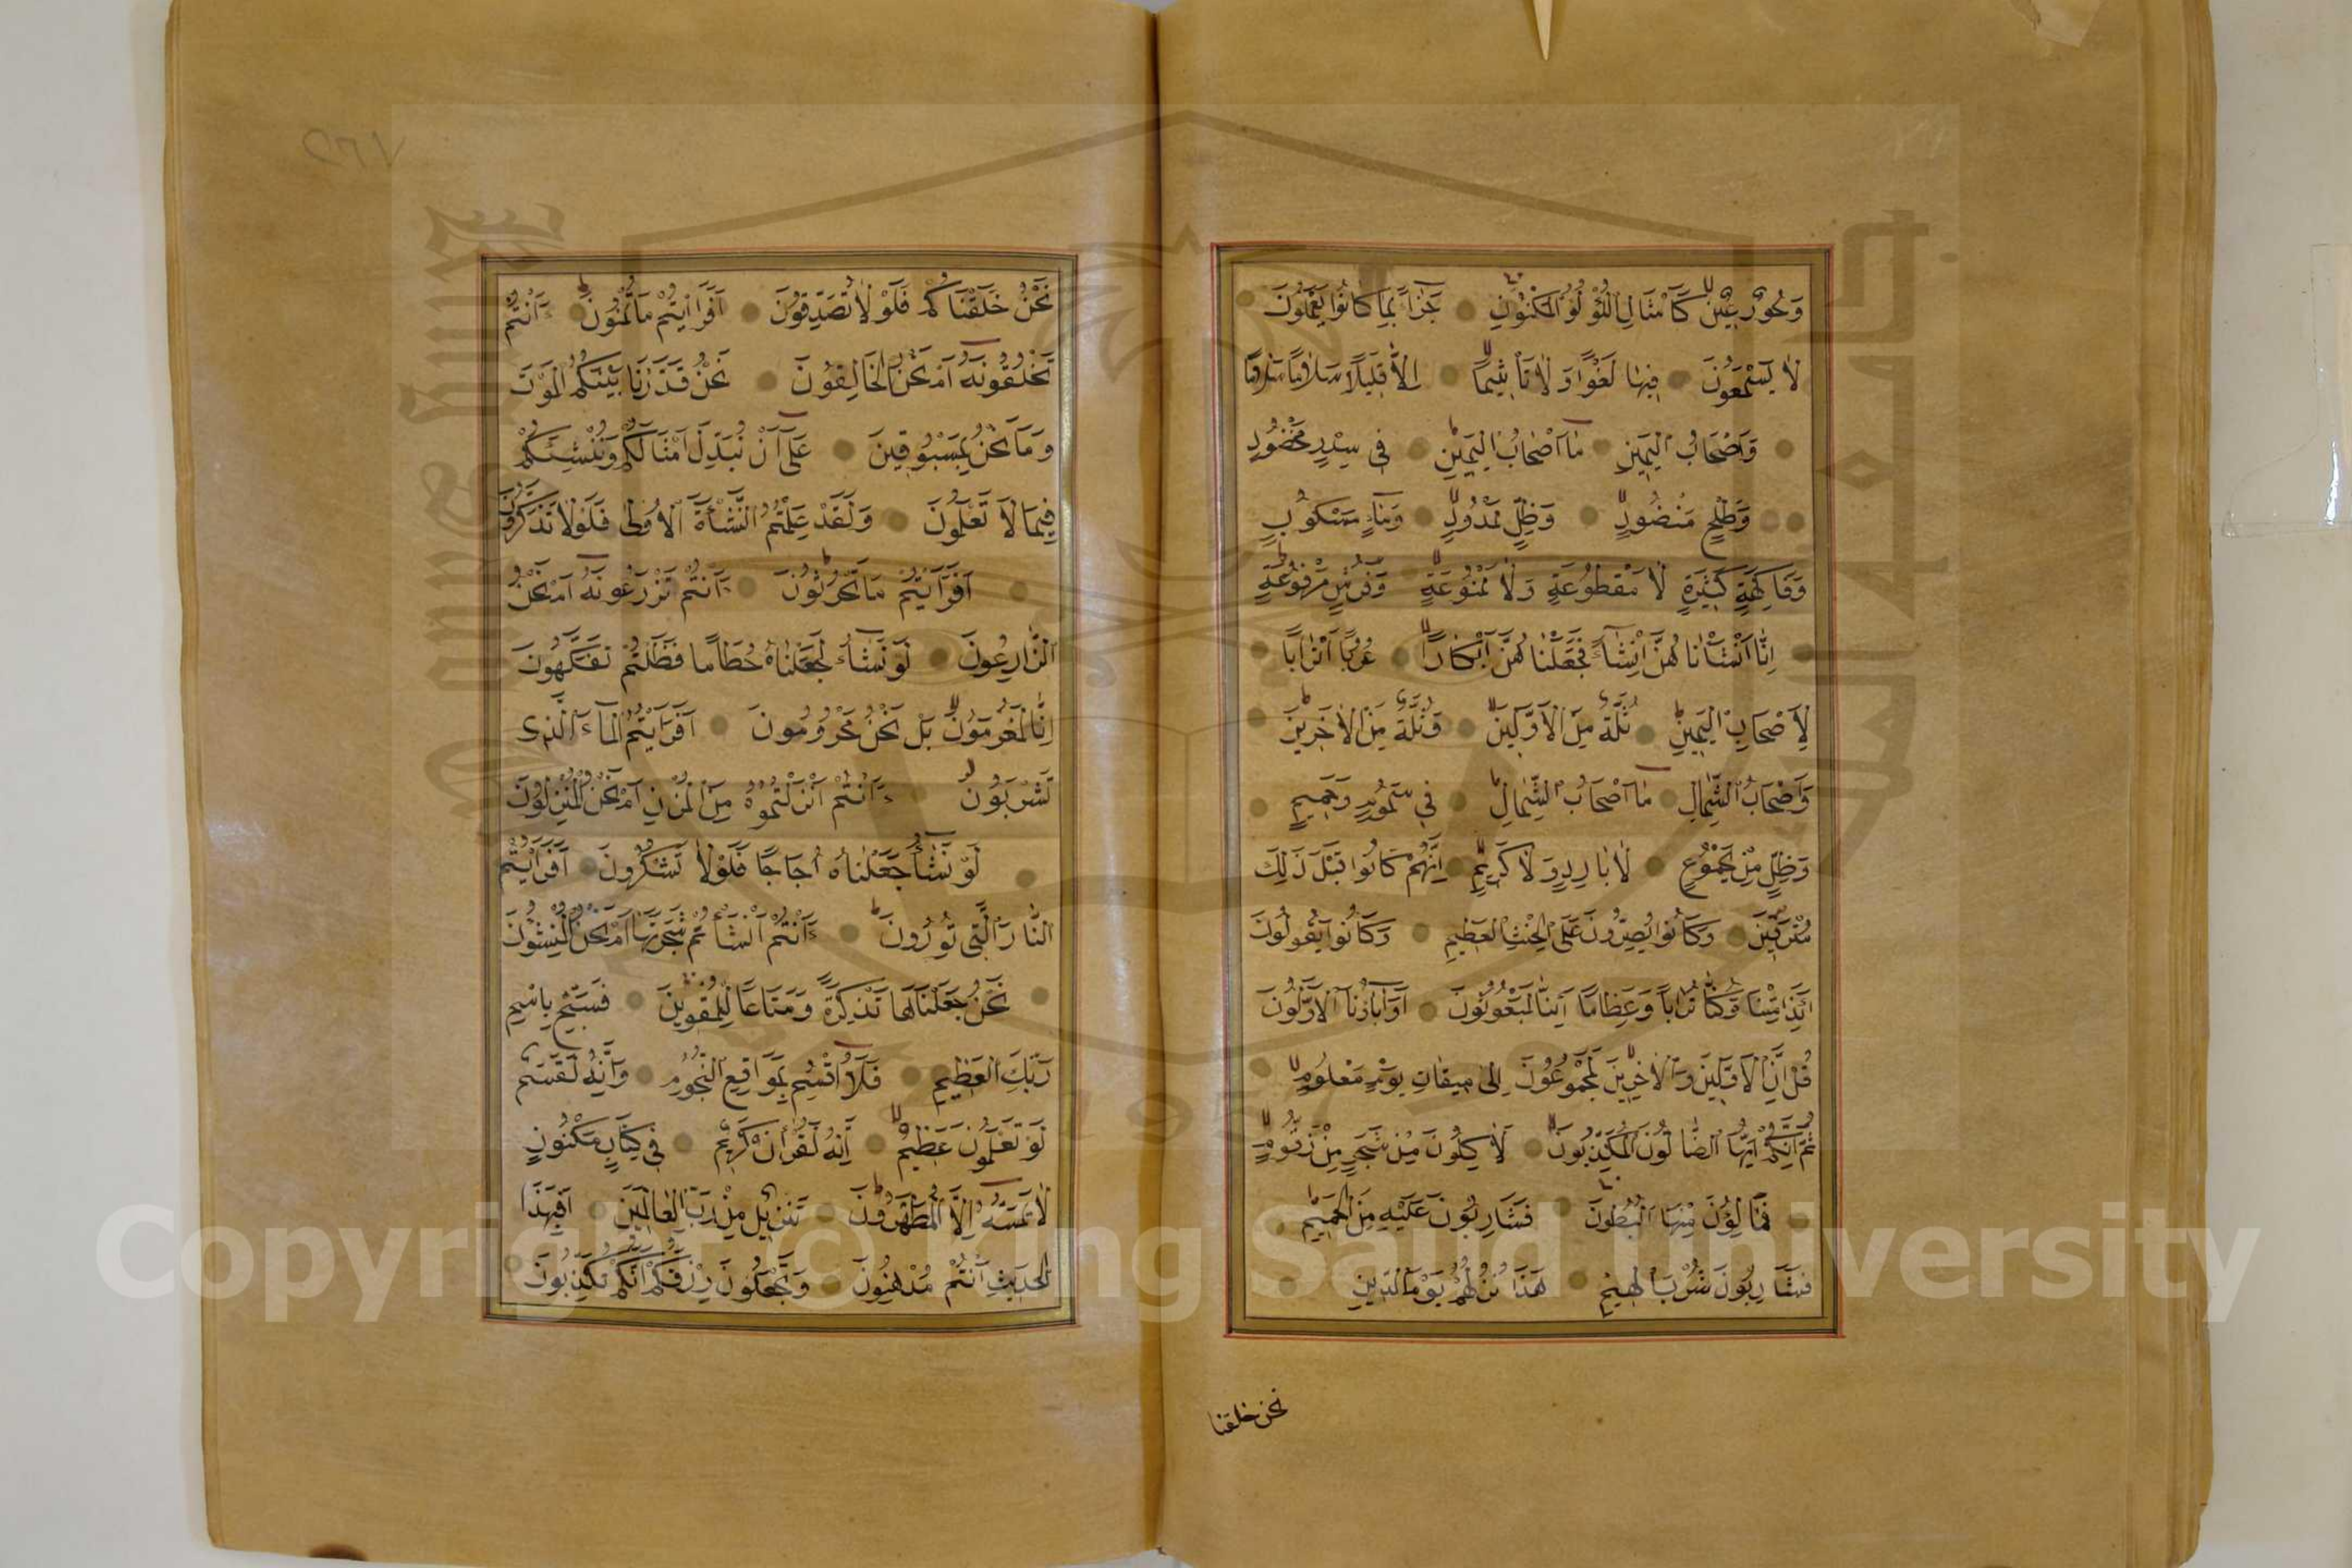 وَحُورٌ عِينٌ كَأَمْثَالِ اللُّؤْلُؤِ الْمَكْنُونِ جَزَاءً بِمَا كَانُوا يَعْمَلُونَ
لَا يَسْمَعُونَ فِيهَا لَغْوًا وَلَا تَأْثِيمًا إِلَّا قِيلًا سَلَامًا سَلَامًا
وَأَصْحَابُ الْيَمِينِ مَا أَصْحَابُ الْيَمِينِ فِي سِدْرٍ مَخْضُودٍ
وَطَلْحٍ مَنْضُودٍ وَظِلٍّ مَمْدُودٍ وَمَاءٍ مَسْكُوبٍ
وَفَاكِهَةٍ كَثِيرَةٍ لَا مَقْطُوعَةٍ وَلَا مَمْنُوعَةٍ وَفُرُشٍ مَرْفُوعَةٍ
إِنَّا أَنْشَأْنَاهُنَّ إِنْشَاءً فَجَعَلْنَاهُنَّ أَبْكَارًا عُرُبًا أَتْرَابًا
لِأَصْحَابِ الْيَمِينِ ثُلَّةٌ مِنَ الْأَوَّلِينَ وَثُلَّةٌ مِنَ الْآخِرِينَ
وَأَصْحَابُ الشِّمَالِ مَا أَصْحَابُ الشِّمَالِ فِي سَمُومٍ وَحَمِيمٍ
وَظِلٍّ مِنْ يَحْمُومٍ لَا بَارِدٍ وَلَا كَرِيمٍ إِنَّهُمْ كَانُوا قَبْلَ ذَلِكَ
مُتْرَفِينَ وَكَانُوا يُصِرُّونَ عَلَى الْحِنْثِ الْعَظِيمِ وَكَانُوا يَقُولُونَ
أَئِذَا مِتْنَا وَكُنَّا تُرَابًا وَعِظَامًا أَئِنَّا لَمَبْعُوثُونَ أَوَآبَاؤُنَا الْأَوَّلُونَ
قُلْ إِنَّ الْأَوَّلِينَ وَالْآخِرِينَ لَمَجْمُوعُونَ إِلَى مِيقَاتِ يَوْمٍ مَعْلُومٍ
ثُمَّ إِنَّكُمْ أَيُّهَا الضَّالُّونَ الْمُكَذِّبُونَ لَآكِلُونَ مِنْ شَجَرٍ مِنْ زَقُّومٍ
فَمَالِئُونَ مِنْهَا الْبُطُونَ فَشَارِبُونَ عَلَيْهِ مِنَ الْحَمِيمِ
فَشَارِبُونَ شُرْبَ الْهِيمِ هَذَا نُزُلُهُمْ يَوْمَ الدِّينِ
نحن خلقنا
٥٦٧
نَحْنُ خَلَقْنَاكُمْ فَلَوْلَا تُصَدِّقُونَ أَفَرَأَيْتُمْ مَا تُمْنُونَ ءَأَنْتُمْ
تَخْلُقُونَهُ أَمْ نَحْنُ الْخَالِقُونَ نَحْنُ قَدَّرْنَا بَيْنَكُمُ الْمَوْتَ
وَمَا نَحْنُ بِمَسْبُوقِينَ عَلَى أَنْ نُبَدِّلَ أَمْثَالَكُمْ وَنُنْشِئَكُمْ
فِيمَا لَا تَعْلَمُونَ وَلَقَدْ عَلِمْتُمُ النَّشْأَةَ الْأُولَى فَلَوْلَا تَذَكَّرُونَ
أَفَرَأَيْتُمْ مَا تَحْرُثُونَ ءَأَنْتُمْ تَزْرَعُونَهُ أَمْ نَحْنُ
الزَّارِعُونَ لَوْ نَشَاءُ لَجَعَلْنَاهُ حُطَامًا فَظَلْتُمْ تَفَكَّهُونَ
إِنَّا لَمُغْرَمُونَ بَلْ نَحْنُ مَحْرُومُونَ أَفَرَأَيْتُمُ الْمَاءَ الَّذِي
تَشْرَبُونَ ءَأَنْتُمْ أَنْزَلْتُمُوهُ مِنَ الْمُزْنِ أَمْ نَحْنُ الْمُنْزِلُونَ
لَوْ نَشَاءُ جَعَلْنَاهُ أُجَاجًا فَلَوْلَا تَشْكُرُونَ أَفَرَأَيْتُمُ
النَّارَ الَّتِي تُورُونَ ءَأَنْتُمْ أَنْشَأْتُمْ شَجَرَتَهَا أَمْ نَحْنُ الْمُنْشِئُونَ
نَحْنُ جَعَلْنَاهَا تَذْكِرَةً وَمَتَاعًا لِلْمُقْوِينَ فَسَبِّحْ بِاسْمِ
رَبِّكَ الْعَظِيمِ فَلَا أُقْسِمُ بِمَوَاقِعِ النُّجُومِ وَإِنَّهُ لَقَسَمٌ
لَوْ تَعْلَمُونَ عَظِيمٌ إِنَّهُ لَقُرْآنٌ كَرِيمٌ فِي كِتَابٍ مَكْنُونٍ
لَا يَمَسُّهُ إِلَّا الْمُطَهَّرُونَ تَنْزِيلٌ مِنْ رَبِّ الْعَالَمِينَ أَفَبِهَذَا
الْحَدِيثِ أَنْتُمْ مُدْهِنُونَ وَتَجْعَلُونَ رِزْقَكُمْ أَنَّكُمْ تُكَذِّبُونَ
Copyright © King Saud University